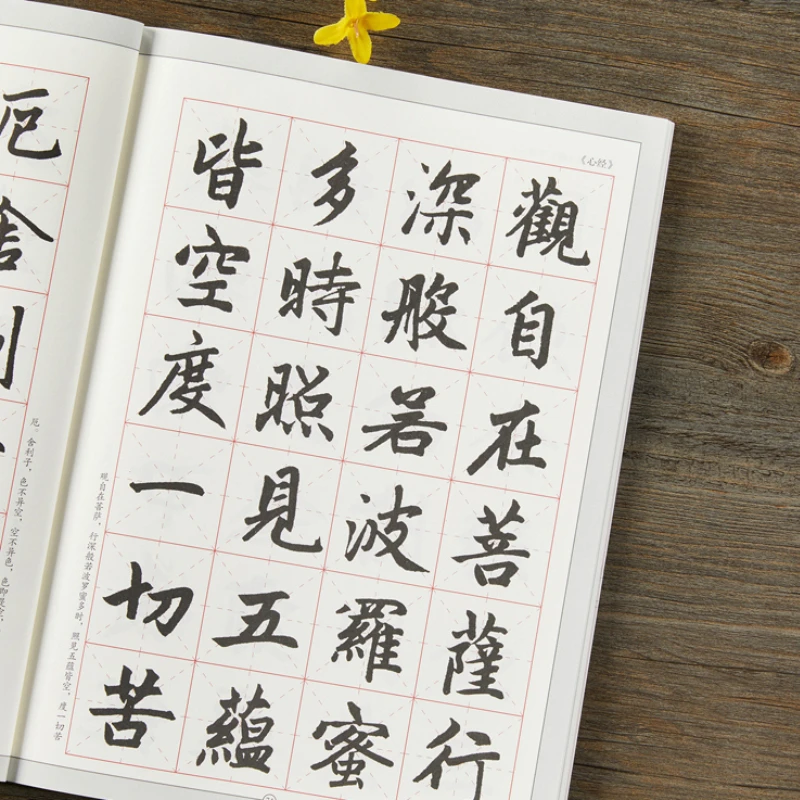 《心经》
觀自在菩薩行
深般若波羅蜜
多時照見五蘊
皆空度一切苦
观自在菩萨，行深般若波罗蜜多时，照见五蕴皆空，度一切苦
厄舍利
厄。舍利子，色不异空，空不异色，色即是空，